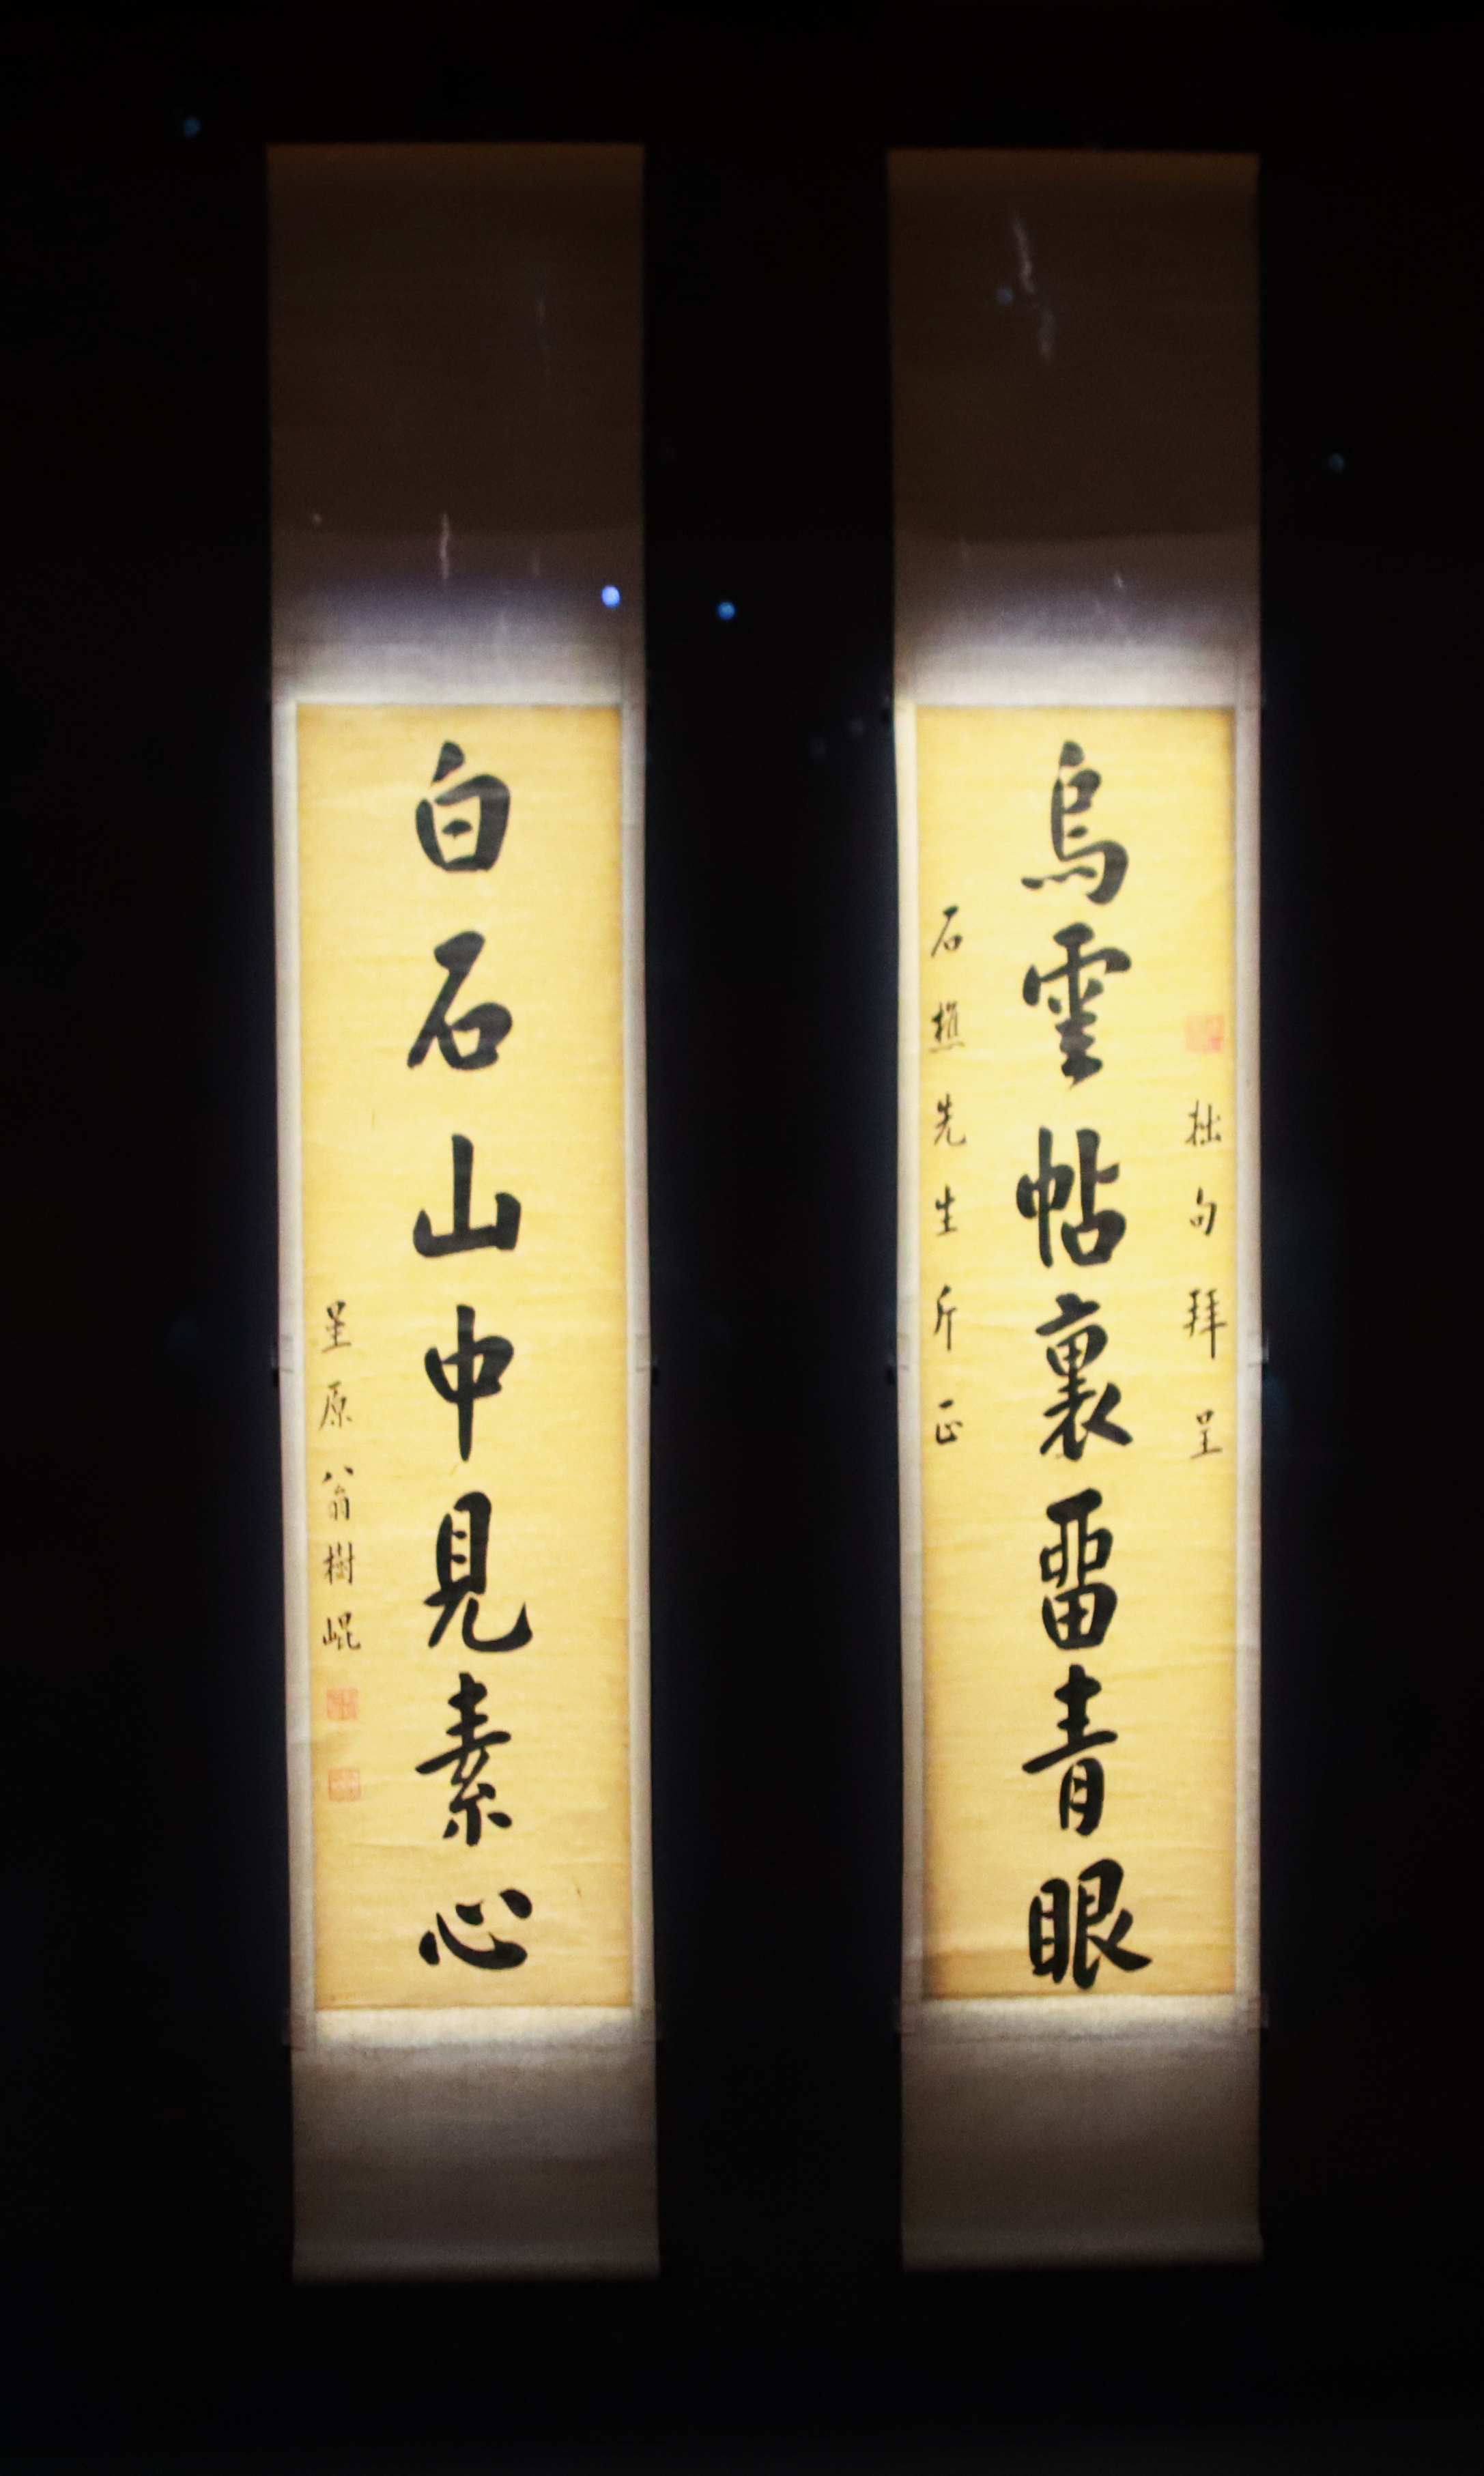 拙句拜呈
烏雲帖裏畱青眼
石樵先生斤正
白石山中見素心
星原翁樹崐